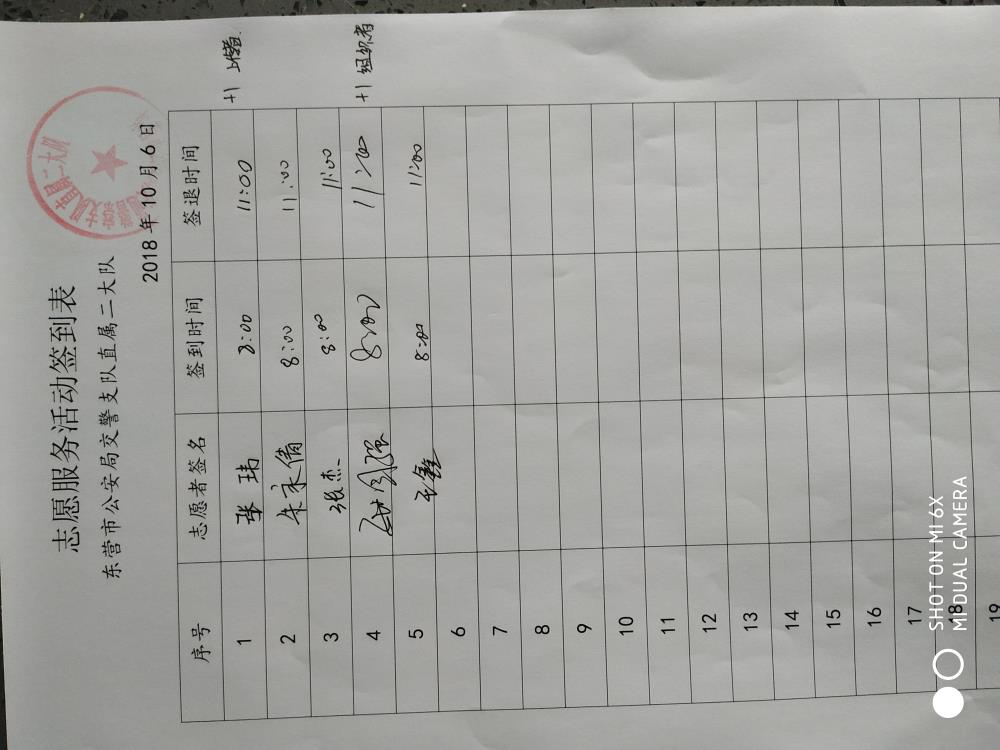 志愿服务活动签到表
东营市公安局交警支队直属二大队
2018 年 10 月 6 日
序号 志愿者签名 签到时间 签退时间
1 张玮 8:00 11:00 +1 上传者
2 朱永倩 8:00 11:00
3 张杰 8:00 11:00
4 8:00 11:00 +1 组织者
5 王鑫 8:00 11:00
6
7
8
9
10
11
12
13
14
15
16
17
18
19
SHOT ON MI 6X
MI DUAL CAMERA